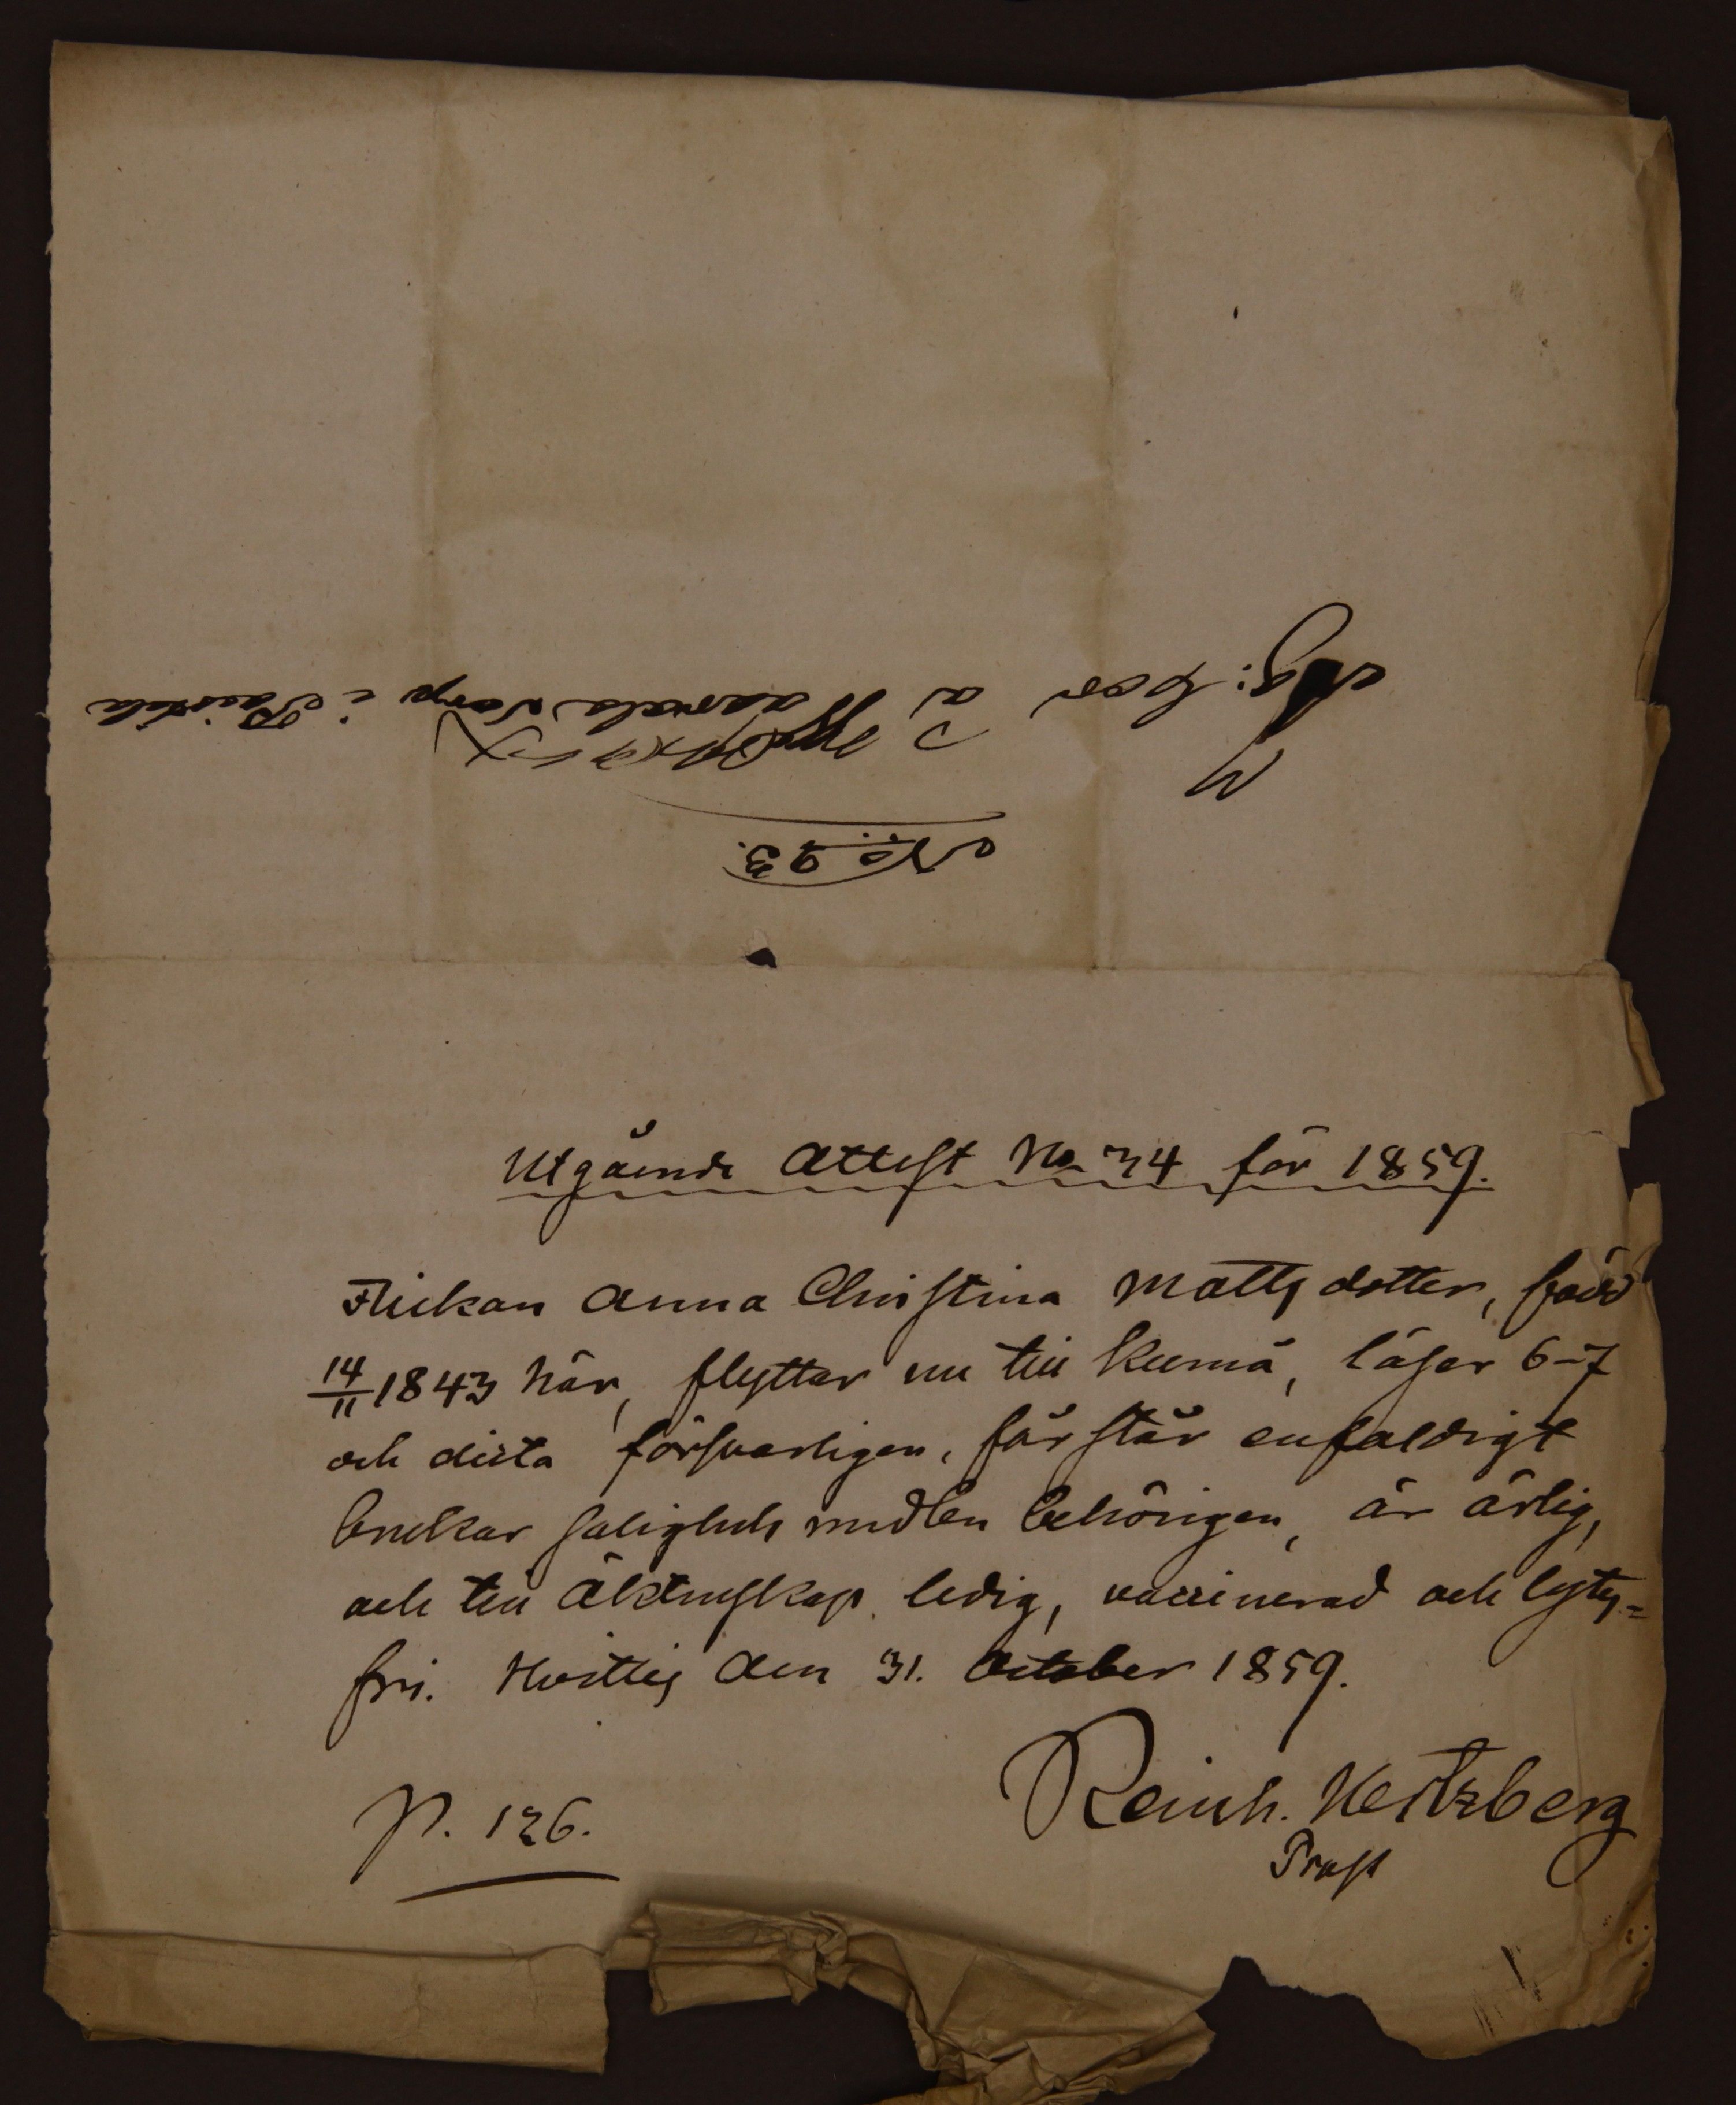 No 93.
Pag: 400
å Waarala torp i Paistila
Utgående Attest No 34 för 1859.
Flickan Anna Christina Mattsdotter, född
14/11 1843 här, flyttar nu till Kumå, läser 6-7
och dicta försvarligen, förstår enfaldigt
brukar salighets medlen behörigen, är ärlig,
och till äktenskap ledig, vaccinerad och lytes=
fri. Hvittis den 31. October 1859.
Reinh. Hertzberg
Prost
p. 126.